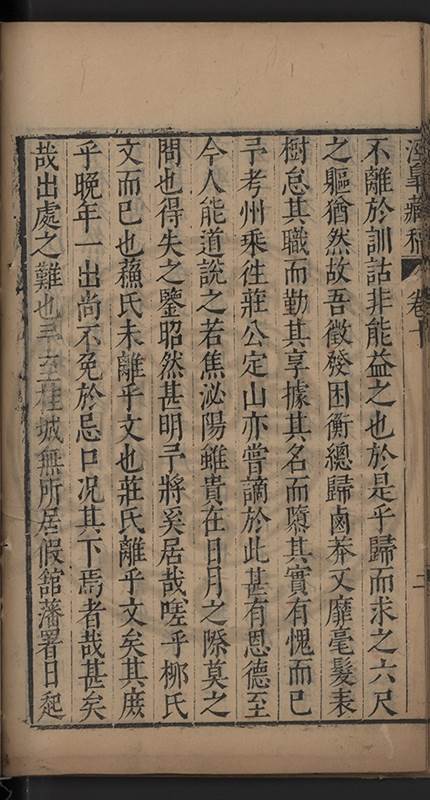 涇臯藏稿 卷十 二
不離於訓詁非能益之也於是乎歸而求之六尺
之軀猶然故吾徵發困衡總歸鹵莽又靡毫髮表
樹怠其職而勤其享據其名而隳其實有愧而已
予考州乘往莊公定山亦嘗謫於此甚有恩德至
今人能道說之若焦泌陽雖貴在日月之際莫之
問也得失之鑒昭然甚明予將奚居哉嗟乎栁氏
文而已也蘓氏未離乎文也莊氏離乎文矣其庶
乎晚年一出尚不免於忌口况其下焉者哉甚矣
哉出處之難也予至桂城無所居假舘藩署日起